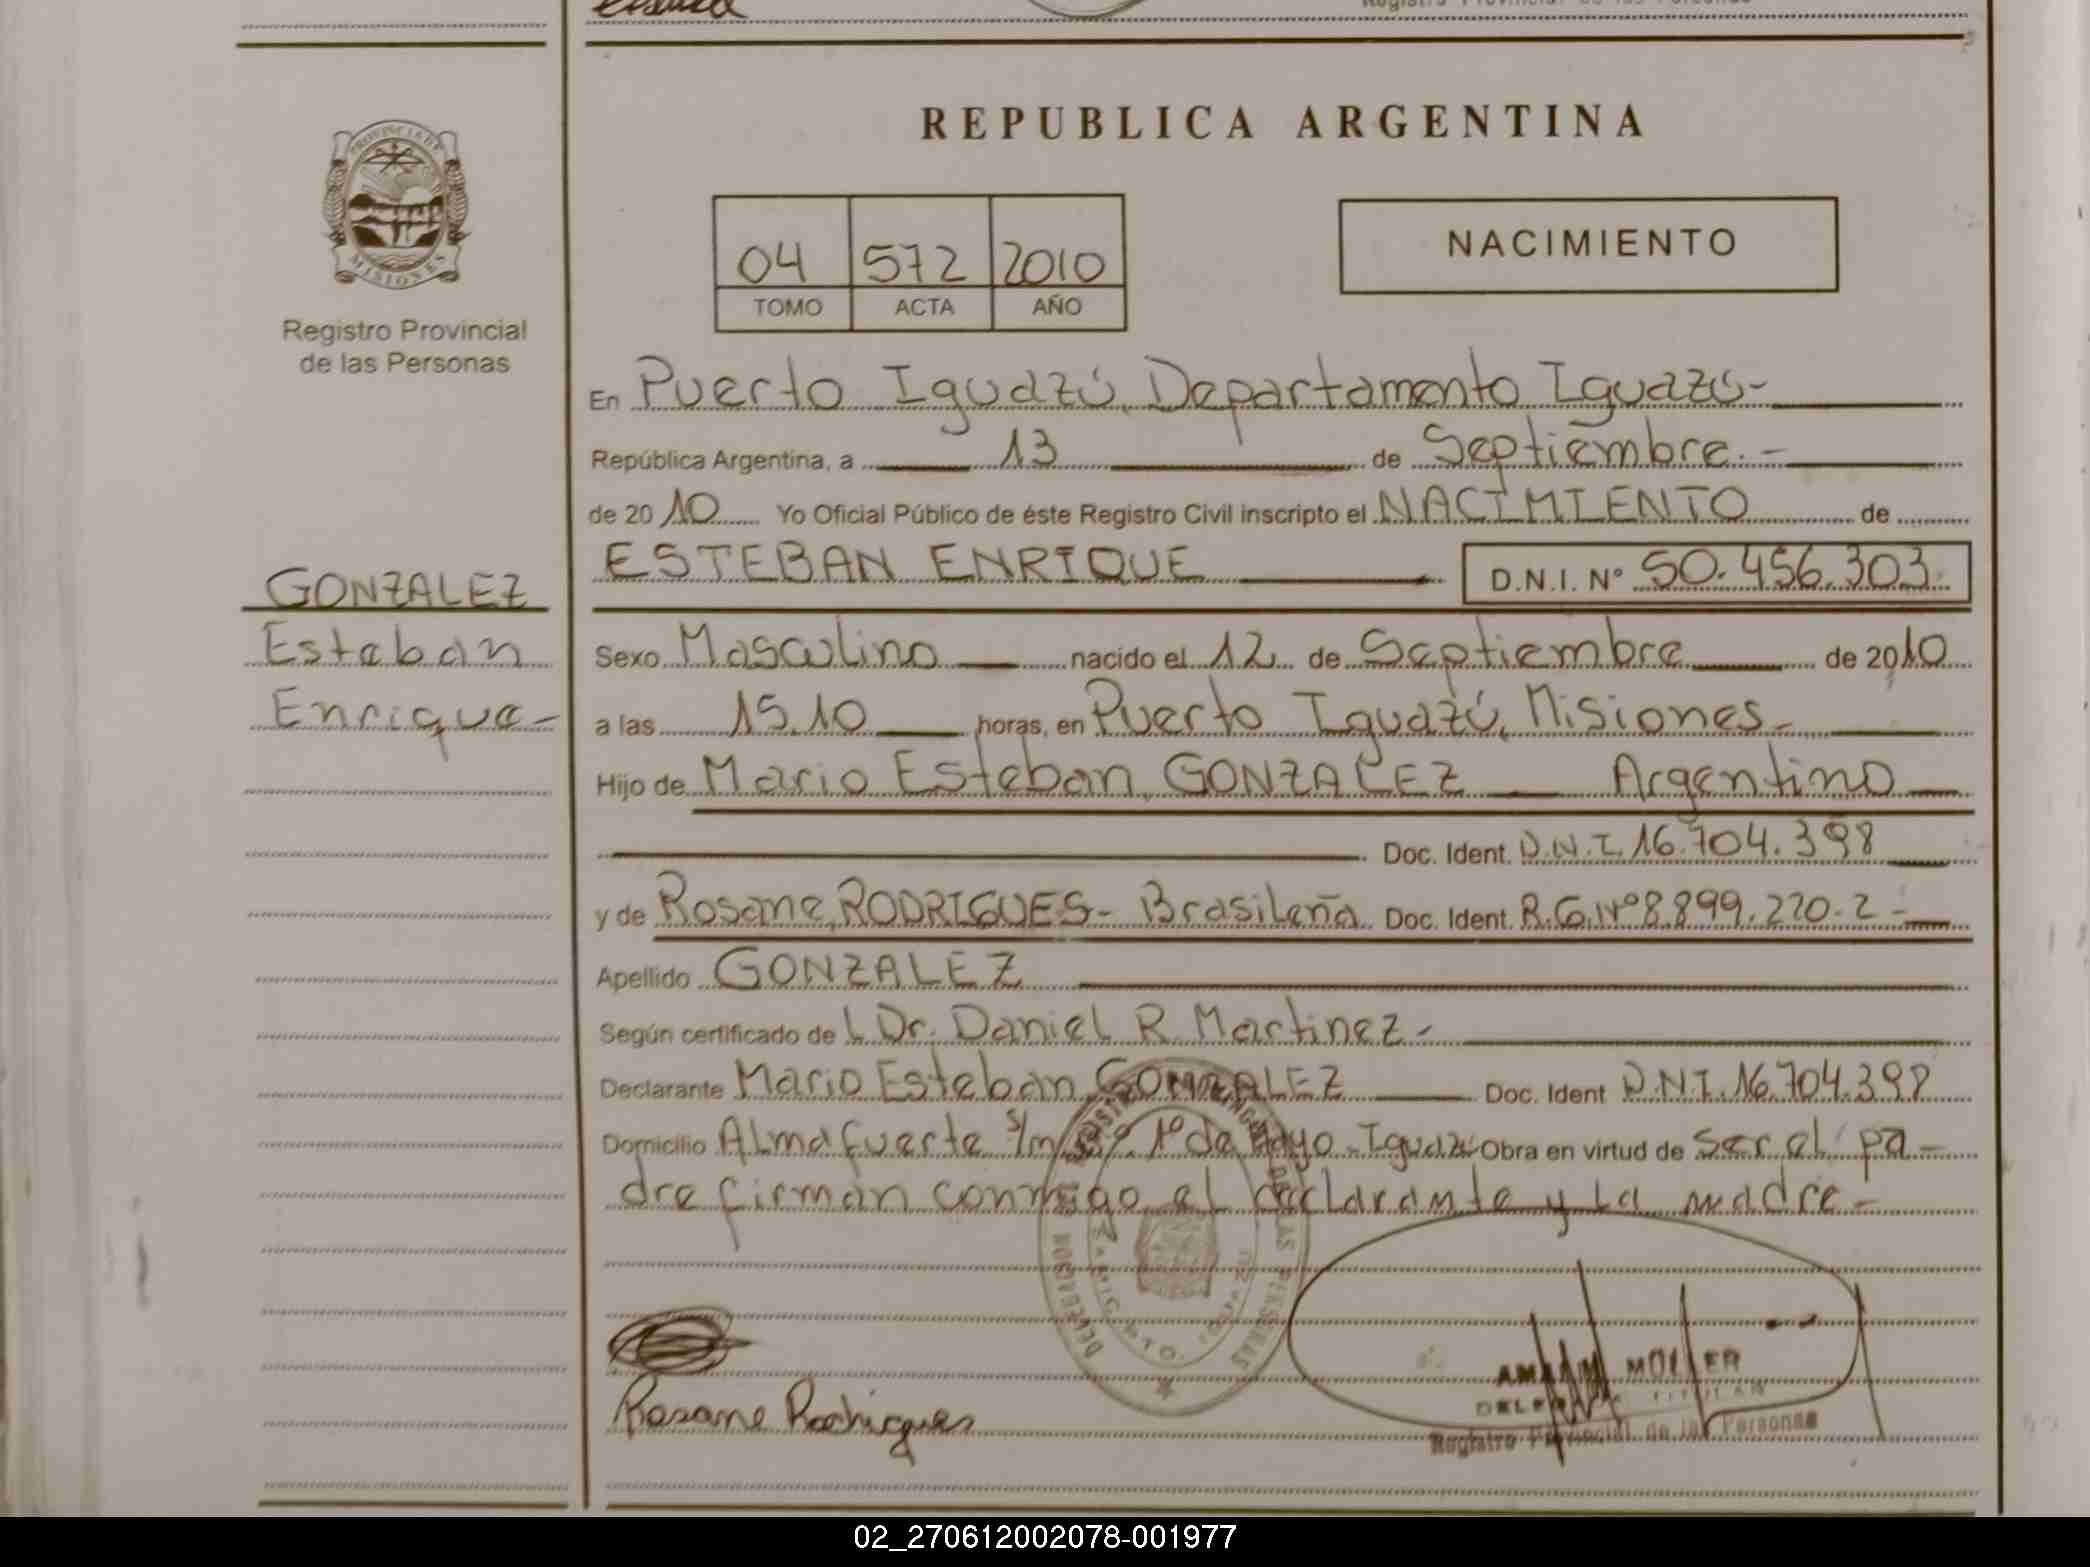 REPUBLICA ARGENTINA
PROVINCIA DE
MISIONES
Registro Provincial
de las Personas
04 572 2010
TOMO ACTA AÑO
NACIMIENTO
En Puerto Iguazú, Departamento Iguazú-
República Argentina, a 13 de Septiembre.-
de 2010 Yo Oficial Público de éste Registro Civil inscripto el NACIMIENTO de
ESTEBAN ENRIQUE D.N.I. N° 50.456.303
GONZALEZ
Esteban
Enrique-
Sexo Masculino nacido el 12 de Septiembre de 2010
a las 15.10 horas, en Puerto Iguazú, Misiones-
Hijo de Mario Esteban, GONZALEZ Argentino
Doc. Ident. D.N.I. 16.704.398
y de Rosane, RODRIGUES- Brasileña Doc. Ident. R.G. N° 8.899.220-2-
Apellido GONZALEZ
Según certificado de Dr. Daniel R. Martinez-
Declarante Mario Esteban, GONZALEZ Doc. Ident D.N.I. 16.704.398
Domicilio Almafuerte 1° de Mayo - Iguazú Obra en virtud de ser el pa-
dre firman conmigo el declarante y la madre-
Rosane Rodrigues
MULLER
Registro Provincial de las Personas
02_270612002078-001977